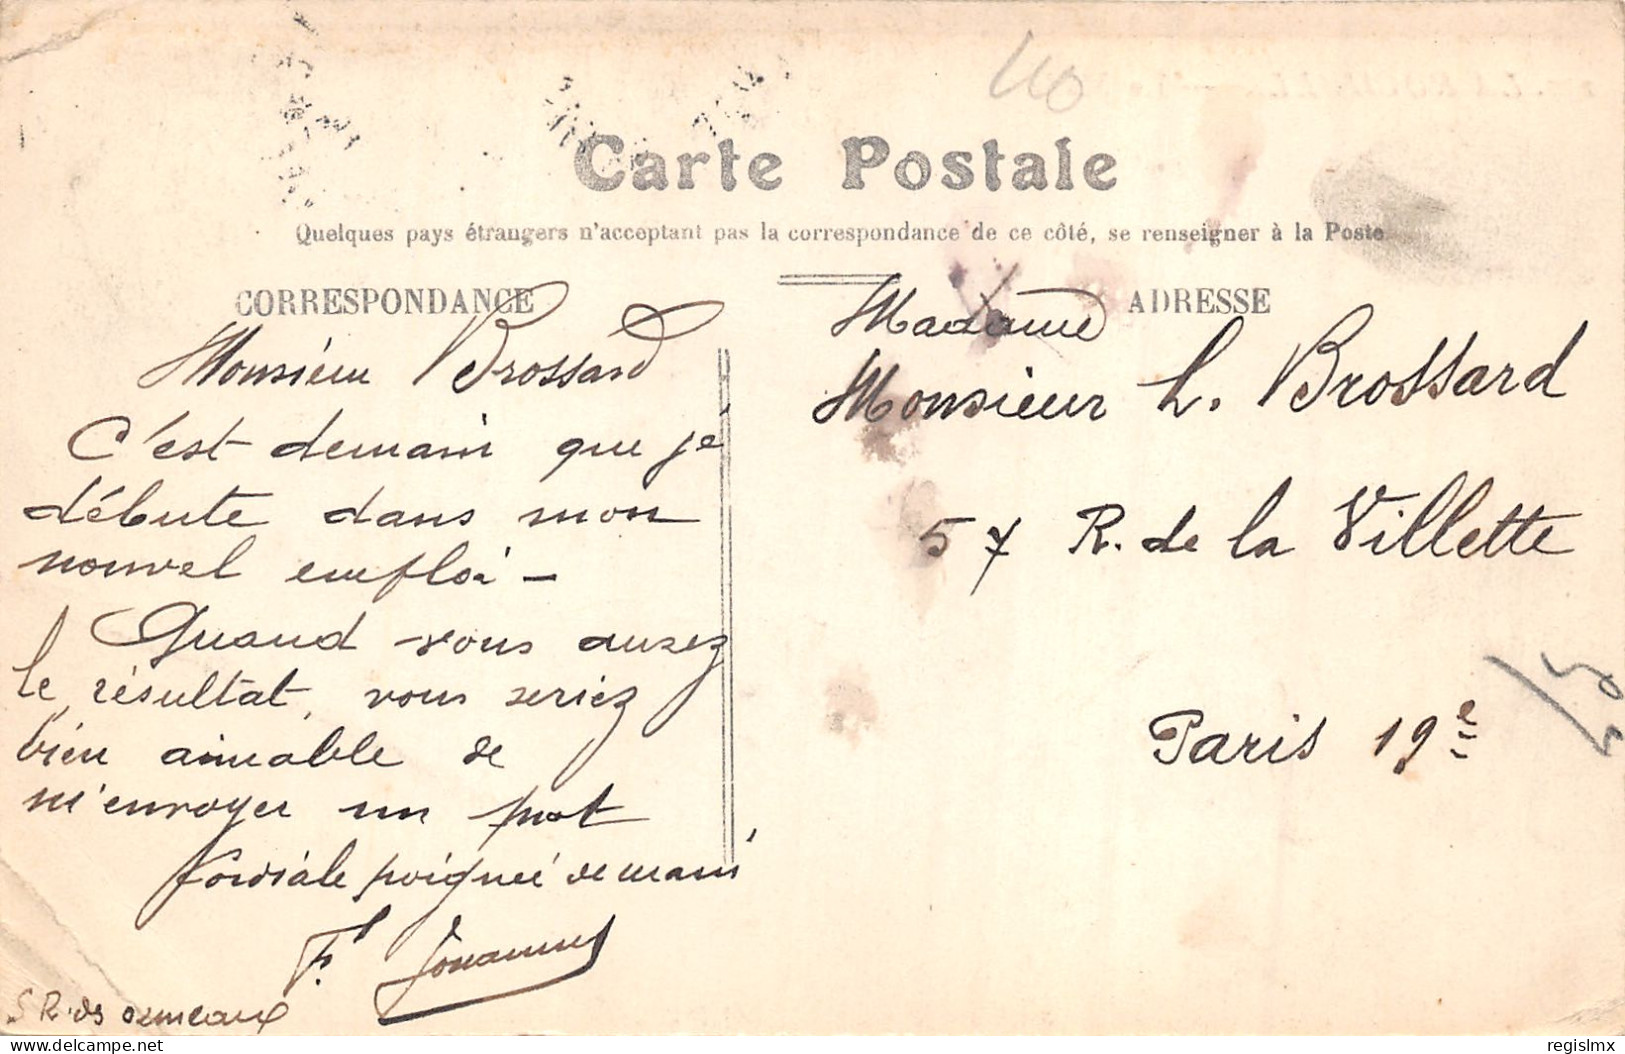 40
Carte Postale
Quelques pays étrangers n'acceptant pas la correspondance de ce côté, se renseigner à la Poste
CORRESPONDANCE
ADRESSE
Monsieur Brossard
C'est demain que je
débute dans mon
nouvel emploi —
Quand vous aurez
le résultat, vous seriez
bien aimable de
m'envoyer un mot
Cordiale poignée de main
F.
5 R. des ormeaux
Madame
Monsieur L. Brossard
57 R. de la Villette
Paris 19e
delcampe.net
regislmx